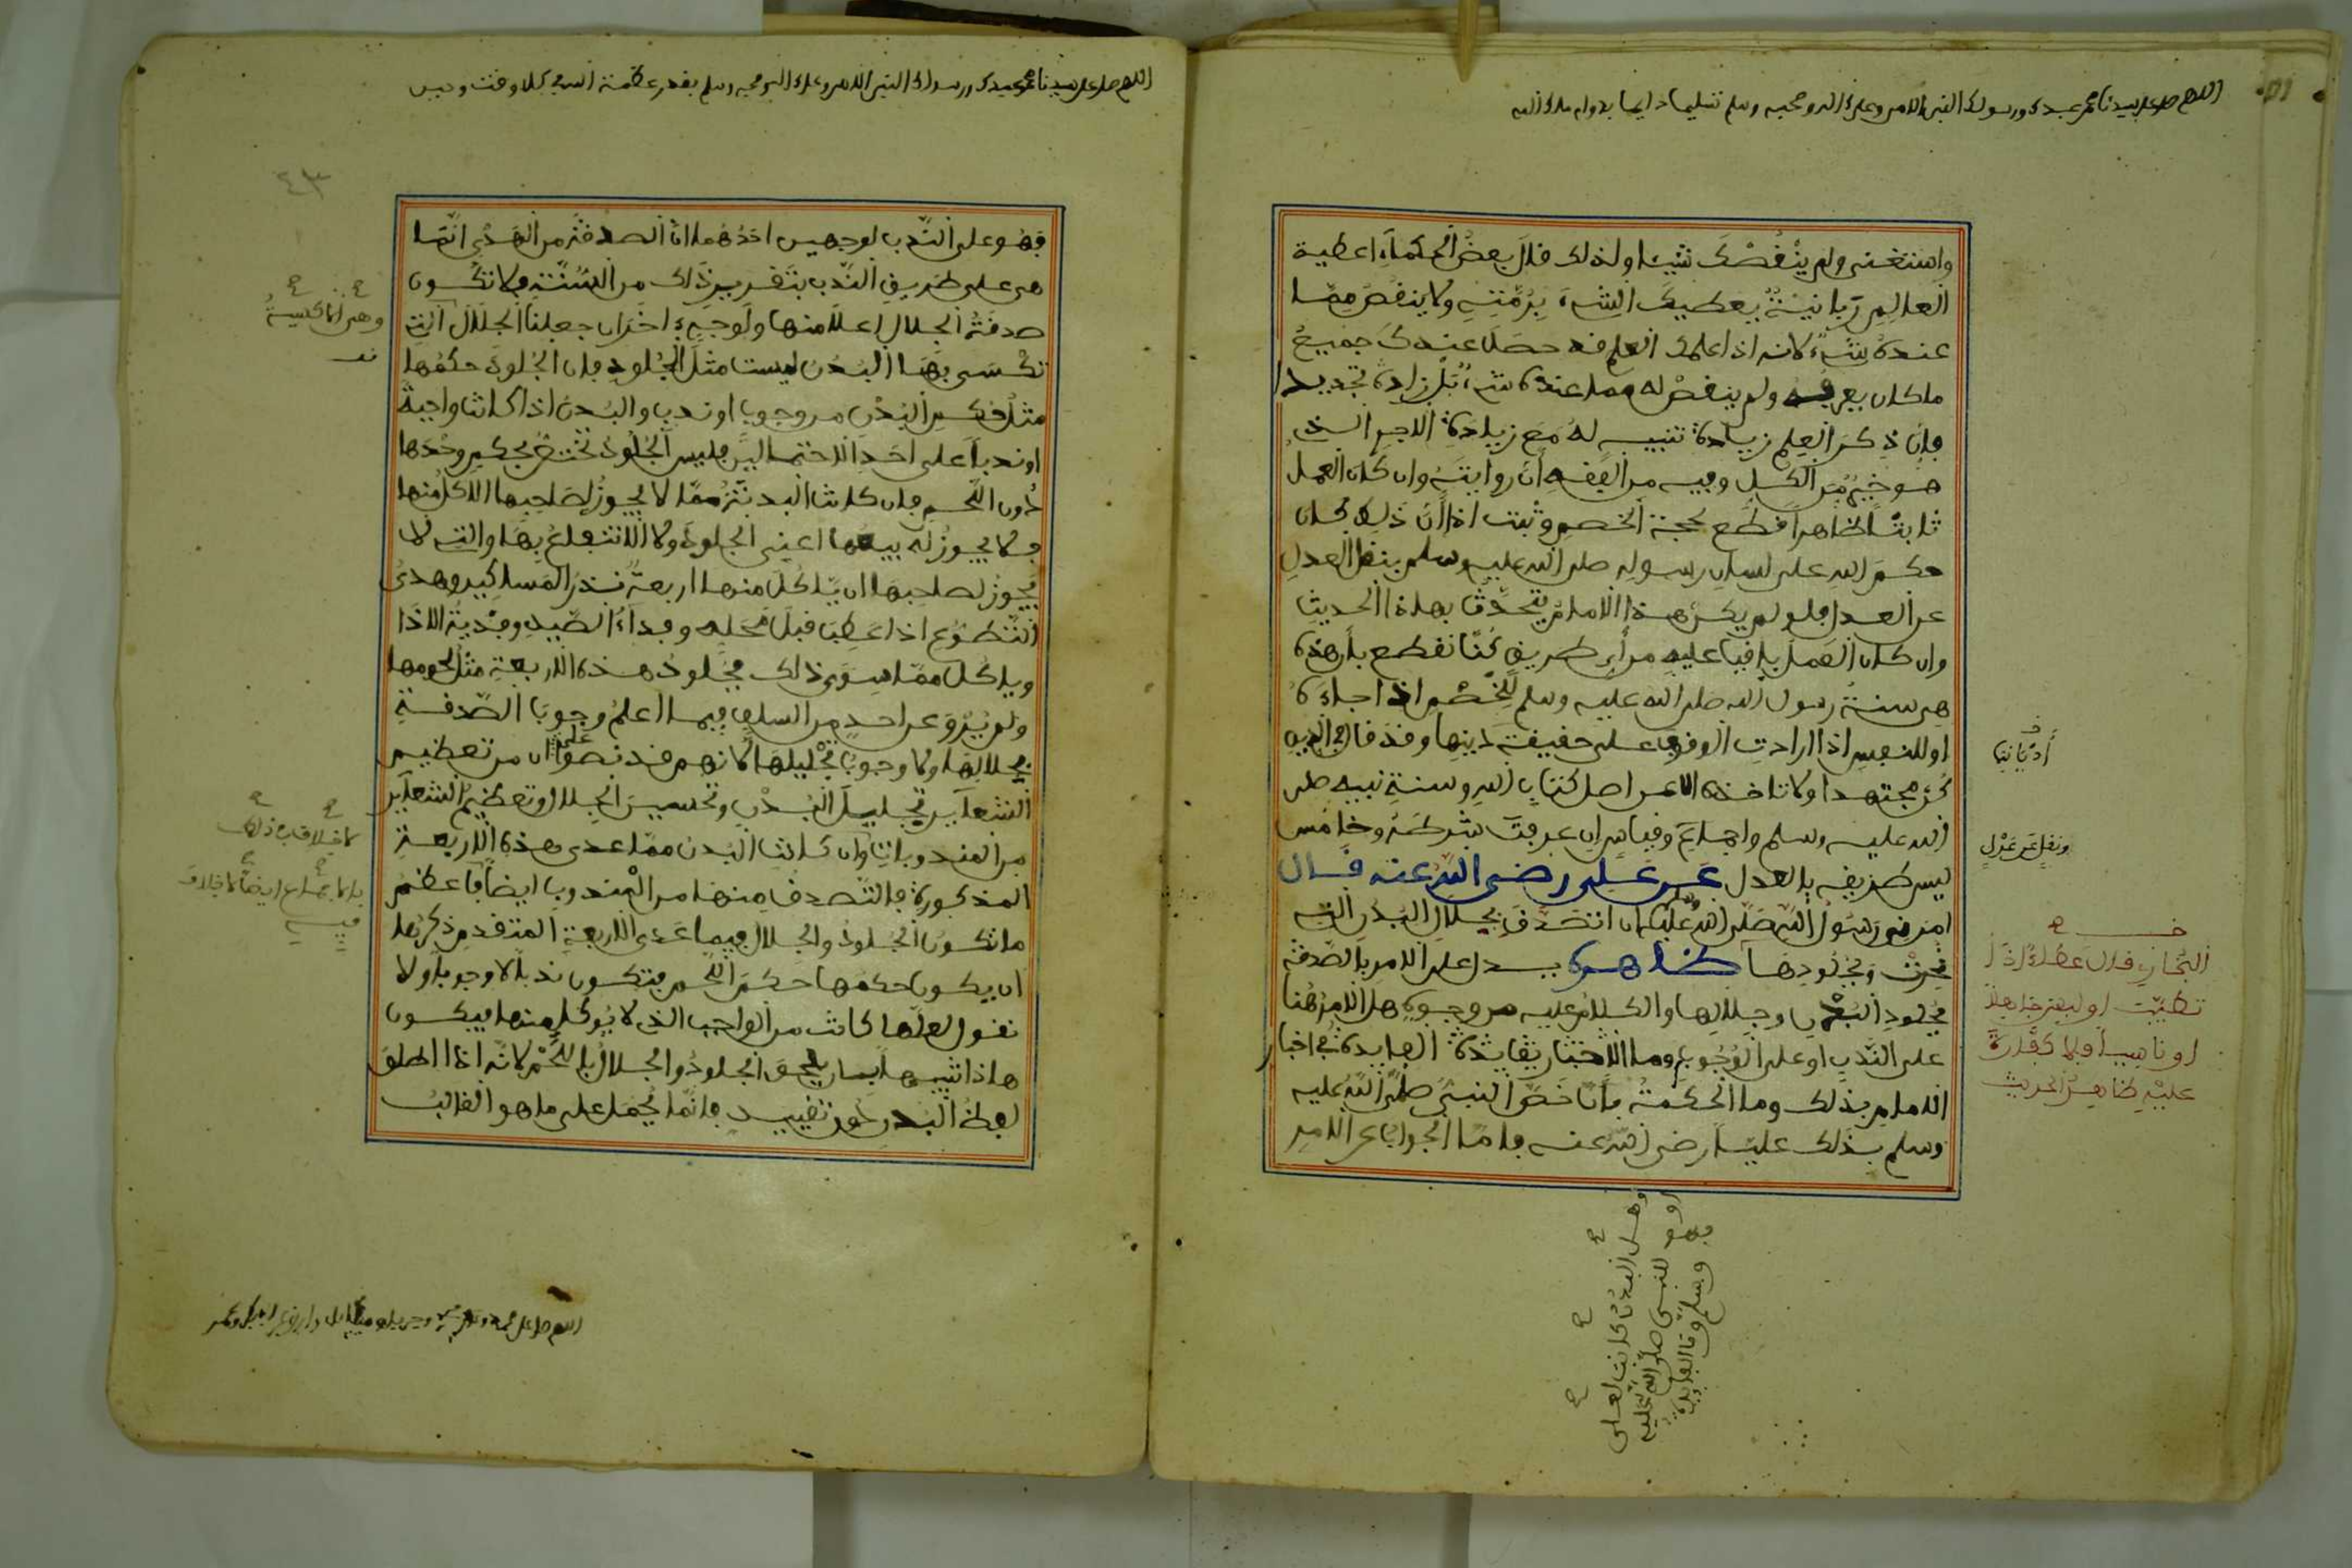 اللهم صل على سيدنا محمد عبدك ورسولك النبي الامي وعلى اله وصحبه وسلم تسليما دايما بدوام ملك الله
واستغنى ولم ينقصك شيئا ولذلك قال بعض الحكماء اعطية
العالم ربانية يعطيك الشيء برمته ولا ينقص مما
عنده شيء لانه اذا علمك العلم فقد حصل عندك جميع
ما كان يعرفه ولم ينقص له مما عنده شيء بل زاده تجديدا
فان ذكر العلم زيادة تنبيه له مع زيادة الاجر الذي
هو خير من الكل وفيه من الفقه ان روايته وان كان العمل
ثابتا ظاهرا قطع لحجة الخصم وثبت اذا ان ذلك كان
حكم الله على لسان رسوله صلى الله عليه وسلم بنقل العدل
عن العدل فلو لم يكن هذا الامام يتحدث بهذا الحديث
وان كان العمل باقيا عليه من اي طريق كنا نقطع بان هذه
هي سنة رسول الله صلى الله عليه وسلم للخصم اذا جاءه
او للنفس اذا ارادت الوقوف على حقيقة دينها وقد قال في الدين
كن مجتهدا ولا تاخذه الا عن اصل كتاب الله وسنة نبيه صلى
الله عليه وسلم واجماع وقياس ان عرفت بشرطه وخامس
ليس طريقه بالعدل عن علي رضي الله عنه قال
امرني رسول الله صلى الله عليه وسلم ان اتصدق بجلال البدن التي
نحرت وبجلودها ظاهره يدل على الامر بالصدقة
بجلود البدن وجلالها والكلام عليه من وجوه هل الامر هنا
على الندب او على الوجوب وما الاخبار بفايدة الفايدة في اخبار
الامام بذلك وما الحكمة بان خص النبي صلى الله عليه
وسلم بذلك عليا رضي الله عنه فاما الجواب عن الامر
ونقل عن عدل
البخاري قال عطاء اذا
تطيب او لبس جاهلا
او ناسيا فلا كفارة
عليه ظاهر الحديث
وهل البدن كانت لعلي
او للنبي صلى الله عليه
وسلم
اللهم صل على سيدنا محمد عبدك ورسولك النبي الامي وعلى اله وصحبه وسلم بقدر عظمة الله في كل وقت وحين
٤٣
فهو على الندب لوجهين احدهما ان الصدقة من الهدي انما
هي على طريق الندب بتقرير ذلك من السنة فلا تكون
صدقة الجلال اعلا منها ولوجه اخر ان جعلنا الجلال التي
تكسى بها البدن ليست مثل الجلود فان الجلود حكمها
مثل حكم البدن من وجوب او ندب والبدن اذا كانت واجبة
او ندبا على احد الاحتمالين فليس الجلود تختص بحكم وحدها
دون اللحم فان كانت البدنة مما لا يجوز لصاحبها الاكل منها
فلا يجوز له بيعها اعني الجلود ولا الانتفاع بها والتي لا
يجوز لصاحبها ان ياكل منها اربعة نذر المساكين وهدي
التطوع اذا عطب قبل محله وفداء الصيد وفدية الاذا
وياكل مما سوى ذلك فجلود هذه الاربعة مثل لحومها
ولم يرو عن احد من السلف فيما اعلم وجوب الصدقة
بجلالها ولا وجوب تجليلها لانهم قد نصوا على ان من تعظيم
الشعاير تجليل البدن وتحسين الجلال وتعظيم الشعاير
من المندوبات وان كانت البدن مما عدى هذه الاربعة
المذكورة فالتصدق منها من المندوب ايضا فاعظم
ما تكون الجلود والجلال فيما عدى الاربعة المتقدم ذكرها
ان يكون حكمها حكم اللحم فتكون ندبا لا وجوبا ولا
نقول لعلها كانت من الواجب الذي لا يوكل منها فيكون
هاذا تنبيها بان يلحق الجلود والجلال باللحم لانه اذا اطلق
لفظ البدن دون تقييد فانما يحمل على ما هو الغالب
بلا خلاف في ذلك